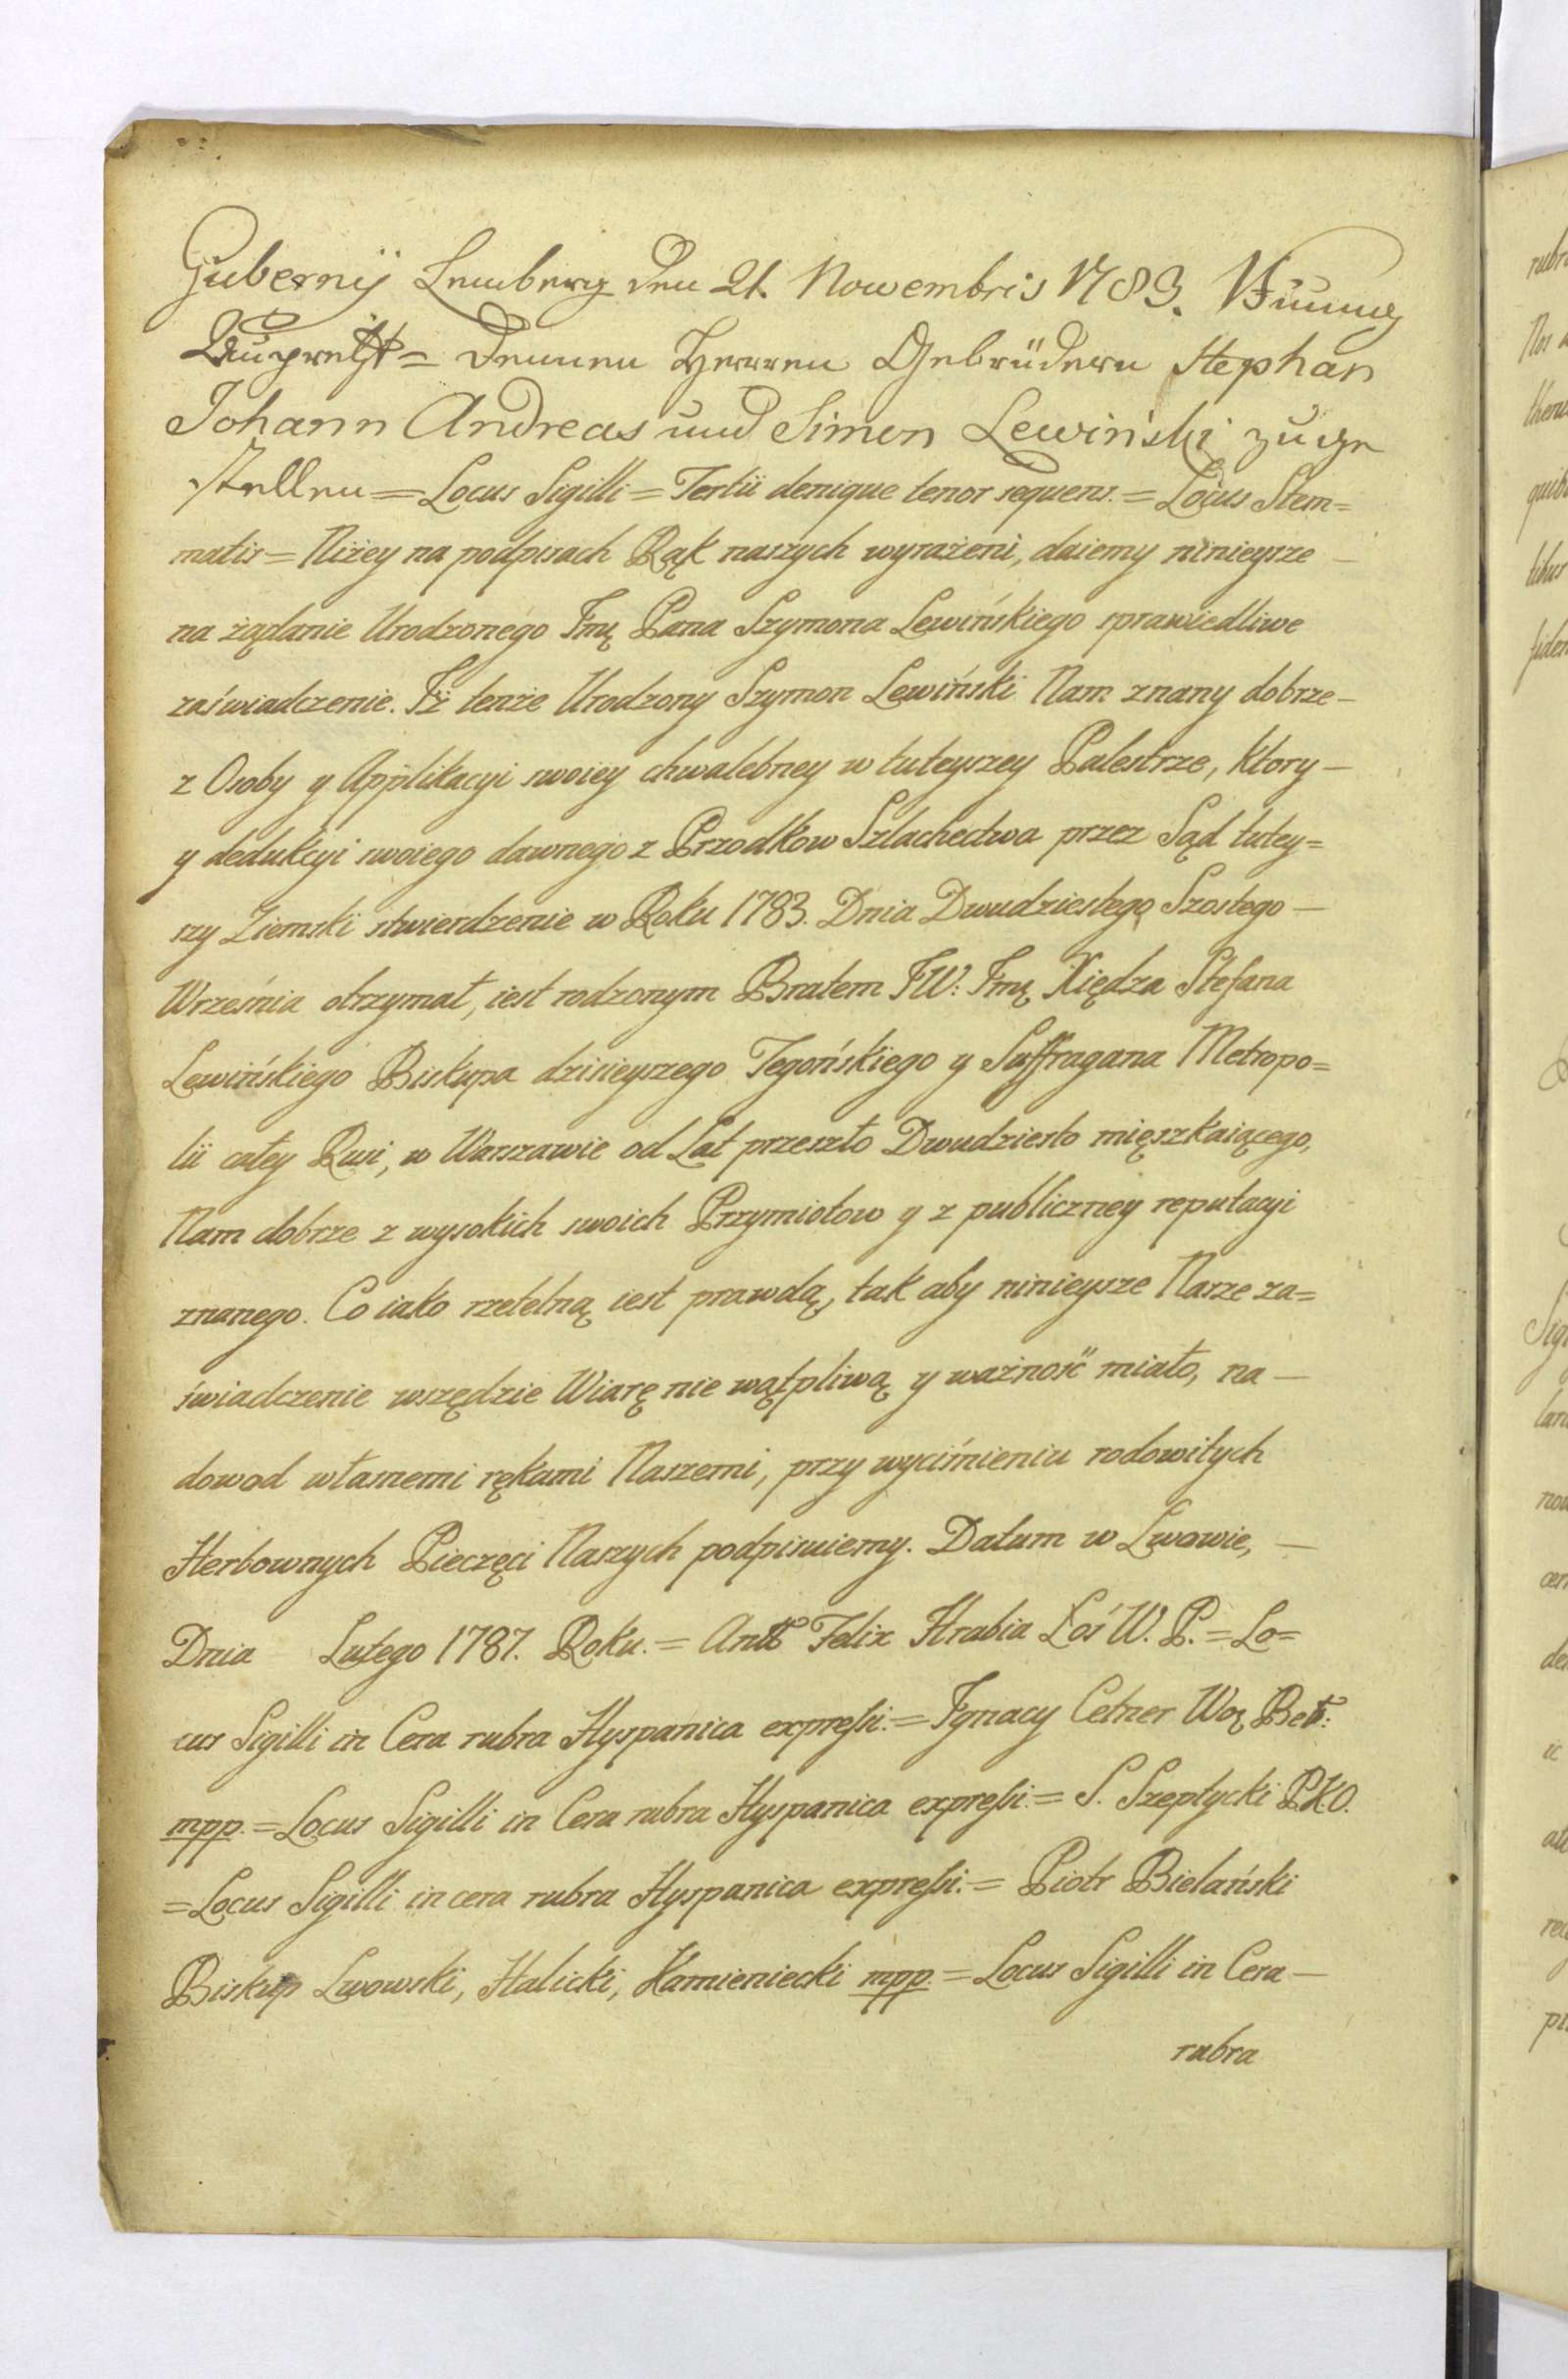 Gubernij Lemberg den 21. Novembris 1783.
denen Herren Gebrüdern Stephan
Johann Andreas und Simon Lewiński zuge
stellen = Locus Sigilli = Tertii denique tenor sequens. = Locus Stem=
matis = Niżey na podpisach Rąk naszych wyrażeni, daiemy ninieysze —
na żądanie Urodzonego Jmę Pana Szymona Lewińskiego sprawiedliwe
zaświadczenie. Iż tenże Urodzony Szymon Lewiński Nam znany dobrze —
z Osoby y Applikacyi swoiey chwalebney w tuteyszey Palestrze, ktory —
y dedukcyi swoiego dawnego z Przodkow Szlachectwa przez Sąd tutey=
szy Ziemski stwierdzenie w Roku 1783. Dnia Dwudziestego Szostego —
Września otrzymał, iest rodzonym Bratem JW: Jmę Xiędza Stefana
Lewińskiego Biskupa dzisieyszego Tegońskiego y Suffragana Metropo=
lii całey Rusi, w Warszawie od Lat przeszło Dwudziesto mięszkaiącego,
Nam dobrze z wysokich swoich Przymiotow y z publiczney reputacyi
znanego. Co iako rzetelną iest prawdą, tak aby ninieysze Nasze za=
świadczenie wszędzie Wiarę nie wątpliwą y ważność miało, na —
dowod własnemi rękami Naszemi, przy wyciśnieniu rodowitych
Herbownych Pieczęci Naszych podpisuiemy. Datum w Lwowie, —
Dnia Lutego 1787. Roku. = Antt Felix Hrabia Łoś W. P. = Lo=
cus Sigilli in Cera rubra Hyspanica expressi. = Ignacy Cetner Woę Beł:
mpp. = Locus Sigilli in Cera rubra Hyspanica expressi. = S. Szeptycki P.K.O.
= Locus Sigilli in cera rubra Hyspanica expressi. = Piotr Bielański
Biskup Lwowski, Halicki, Kamieniecki mpp. = Locus Sigilli in Cera —
rubra